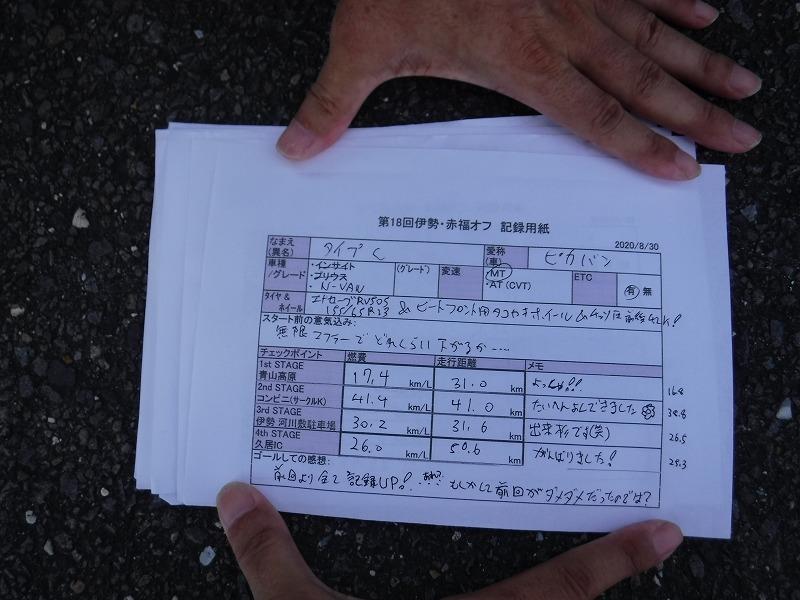 第18回伊勢・赤福オフ 記録用紙
2020/8/30
なまえ(異名) タイプC 愛称(車) ピカバン
車種/グレード ・インサイト ・プリウス ・N-VAN (グレード) 変速 MT ・AT(CVT) ETC 有 無
タイヤ&ホイール エナセーブRV505 155/65R13 & ビートフロント用
スタート前の意気込み:
無限マフラーでどれくらい下がるか‥‥
チェックポイント 燃費 走行距離 メモ
1st STAGE 青山高原 17.4 km/L 31.0 km よっしゃ!! 16.8
2nd STAGE コンビニ(サークルK) 41.4 km/L 41.0 km たいへんよくできました 38.8
3rd STAGE 伊勢 河川敷駐車場 30.2 km/L 31.6 km 出来杉でる(笑) 26.5
4th STAGE 久居IC 26.0 km/L 50.6 km がんばりました! 25.3
ゴールしての感想:
前回より全て記録UP!! もしかして前回がダメダメだったのでは?